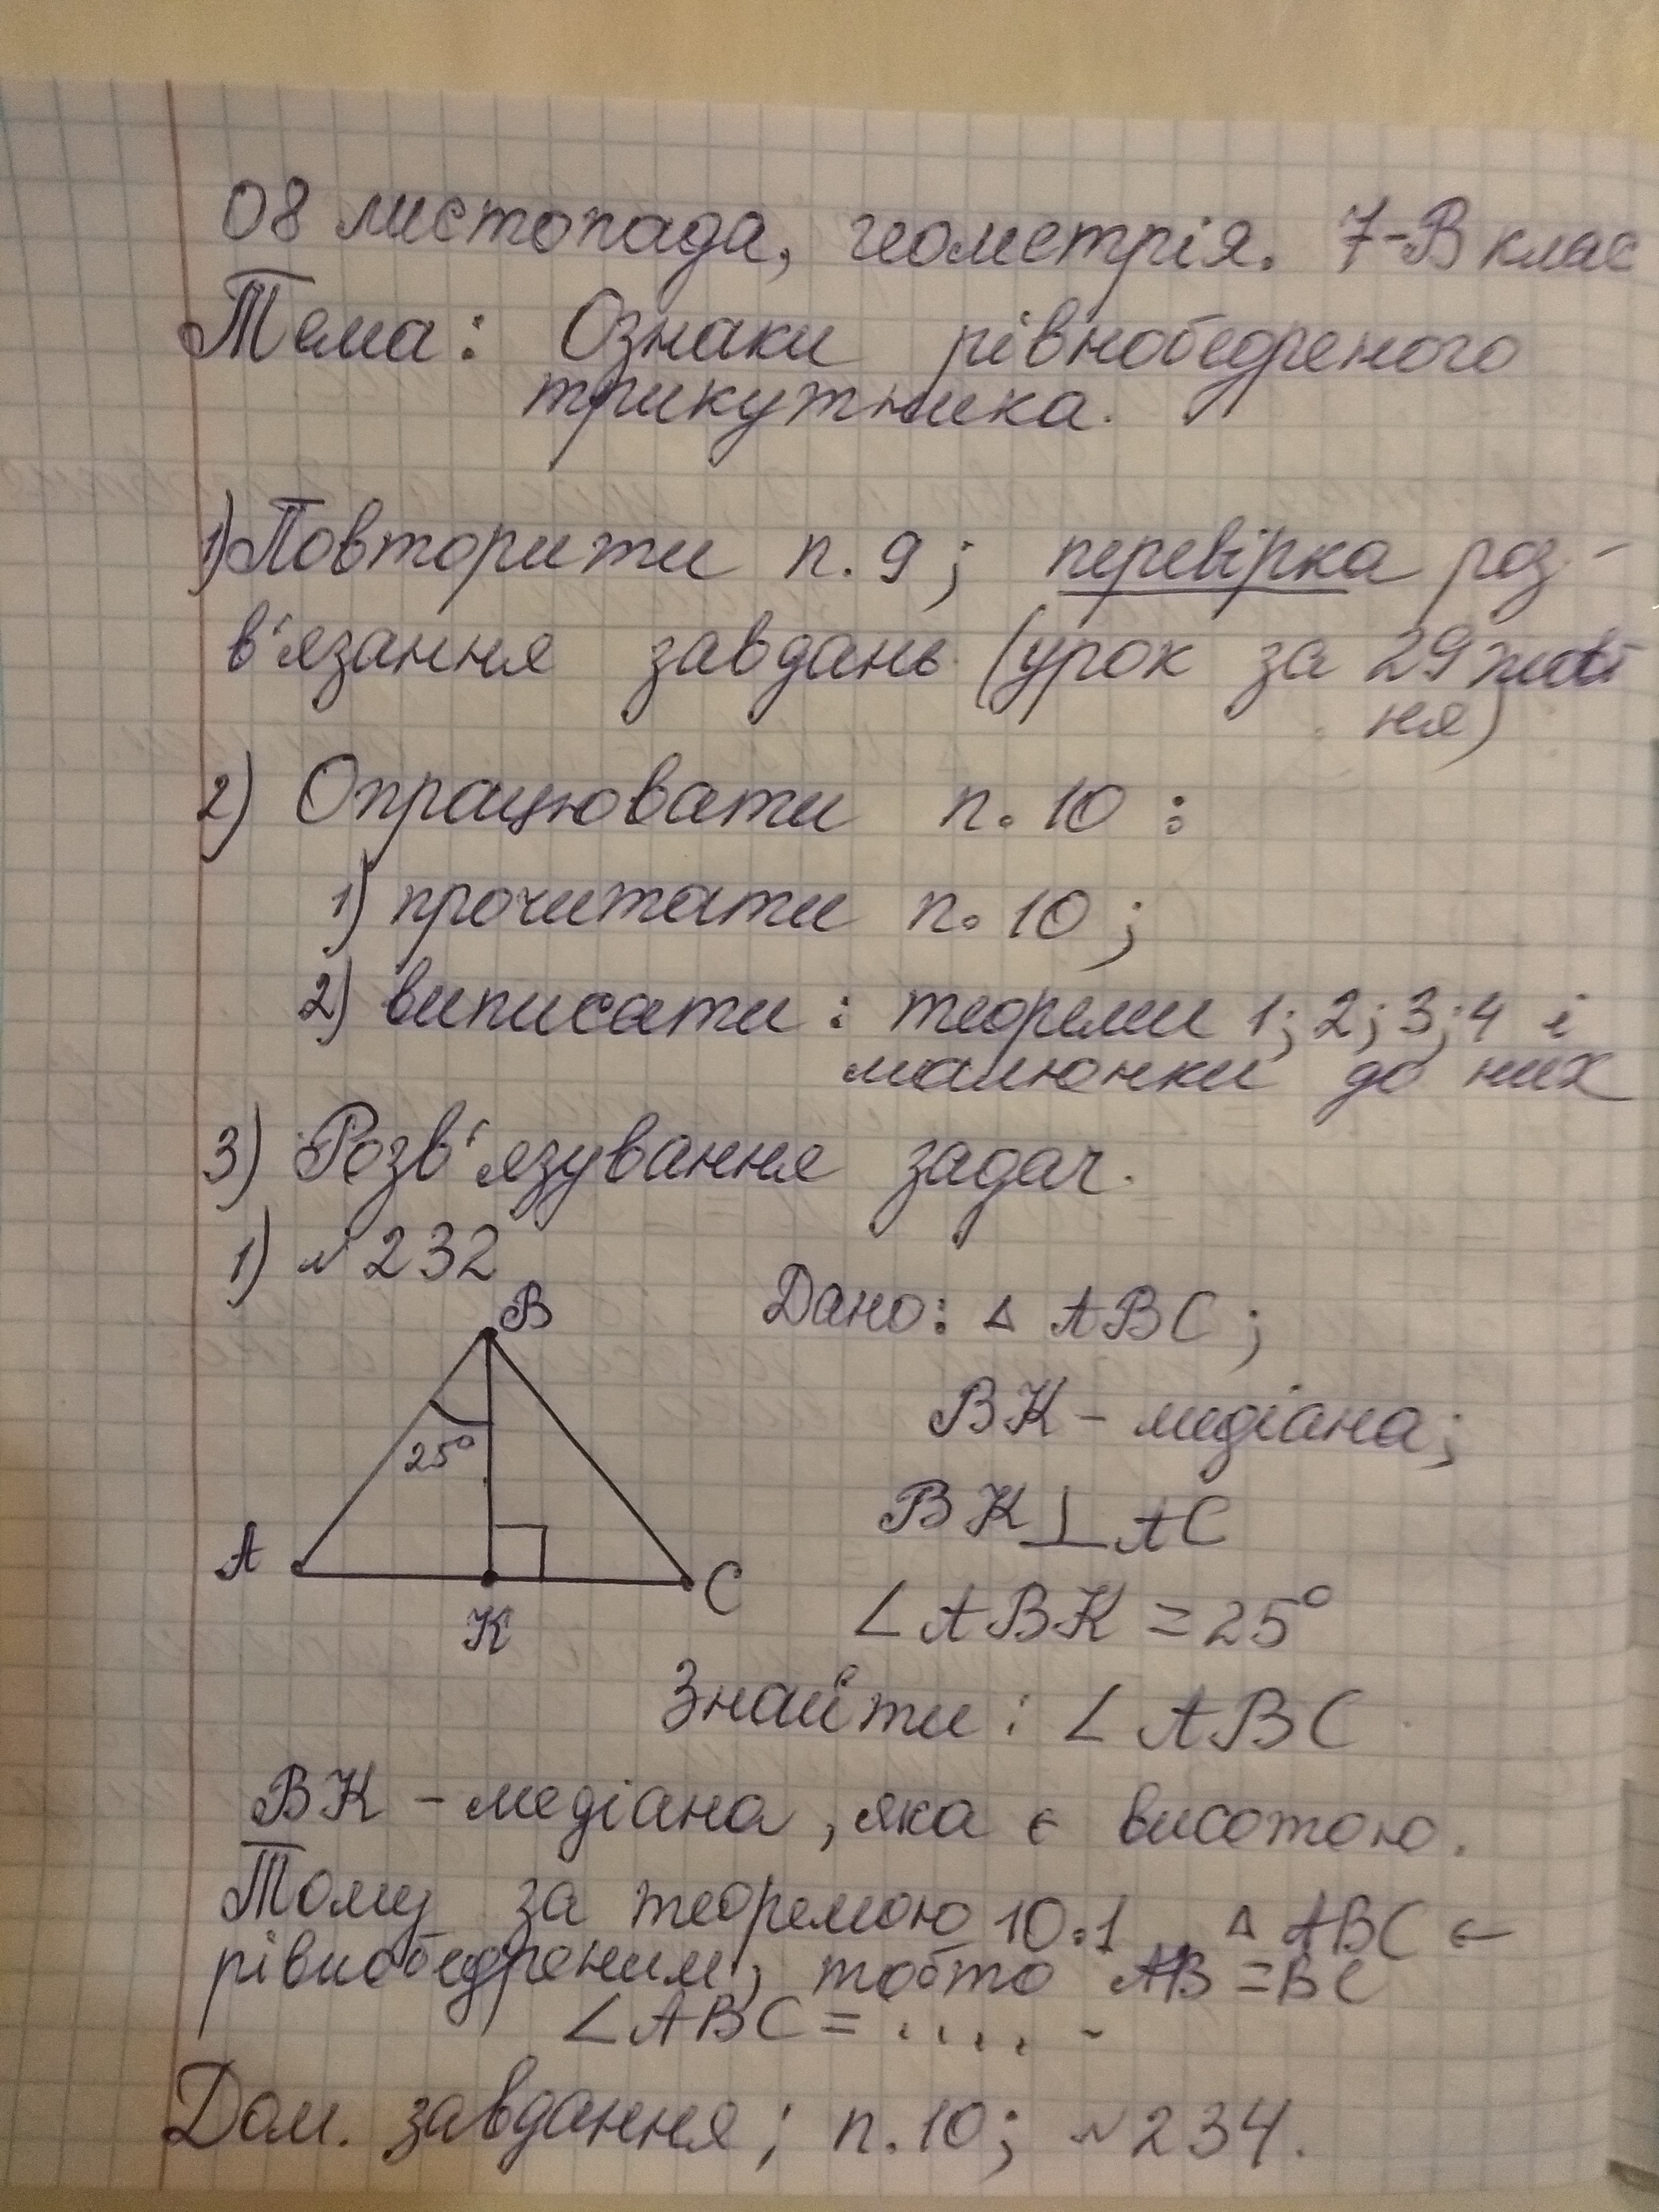 08 листопада, геометрія. 7-В клас
Тема: Ознаки рівнобедреного
трикутника.
1) Повторити п. 9; перевірка роз-
в'язання завдань (урок за 29 жовт
ня)
2) Опрацювати п. 10 :
1) прочитати п. 10 ;
2) виписати : теореми 1; 2; 3; 4 і
малюнки до них
3) Розв'язування задач.
1) №232
B
Дано: △ ABC ;
BK – медіана;
25°
BK ⊥ AC
A
C
K
∠ ABK = 25°
Знайти : ∠ ABC
BK – медіана, яка є висотою.
Тому за теоремою 10.1 △ ABC є
рівнобедреним, тобто AB = BC
∠ABC = .....
Дом. завдання; п. 10; №234.